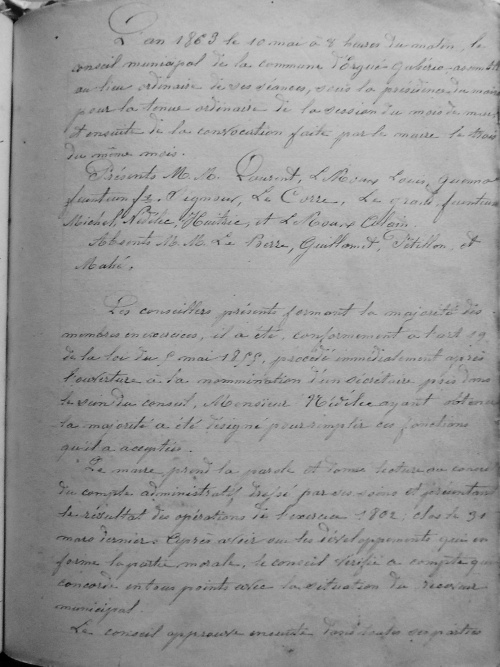 L'an 1863 le 10 mai à 8 heures du matin, le
conseil municipal de la commune d'Ergué-Gabéric
au lieu ordinaire de ses séances, sous la présidence du maire
pour la tenue ordinaire de la session du mois de mai,
ensuite de la convocation faite par le maire le trois
du même mois.
Présents M.M. Laurent, Le Roux Louis,
Le Corre, Le
Michel, Nédélec, Huitric, et Le Roux Alain.
Absents M.M. Le Berre, Guillamet, Pétillon, et
Mahé.
Les conseillers présents formant la majorité des
membres en exercices, il a été, conformement à l'art 19
de la loi du 5 mai 1855, procédé immédiatement après
l'ouverture à la nommination d'un sécrétaire pris dans
le sein du conseil, Monsieur Nédélec ayant obtenu
la majorité a été désigné pour remplir ces fonctions
qu'il a acceptées.
Le maire prend la parole et donne lecture au conseil
du compte administratif dressé par ses soins et présentant
le résultat des opérations de l'exercice 1862, clos le 31
mars dernier. Après avoir vu les développements qui en
forme la partie morale, le conseil vérifie ce compte qui
concorde en tous points avec la situation du receveur
municipal.
Le conseil approuve ensuite dans toutes ses parties